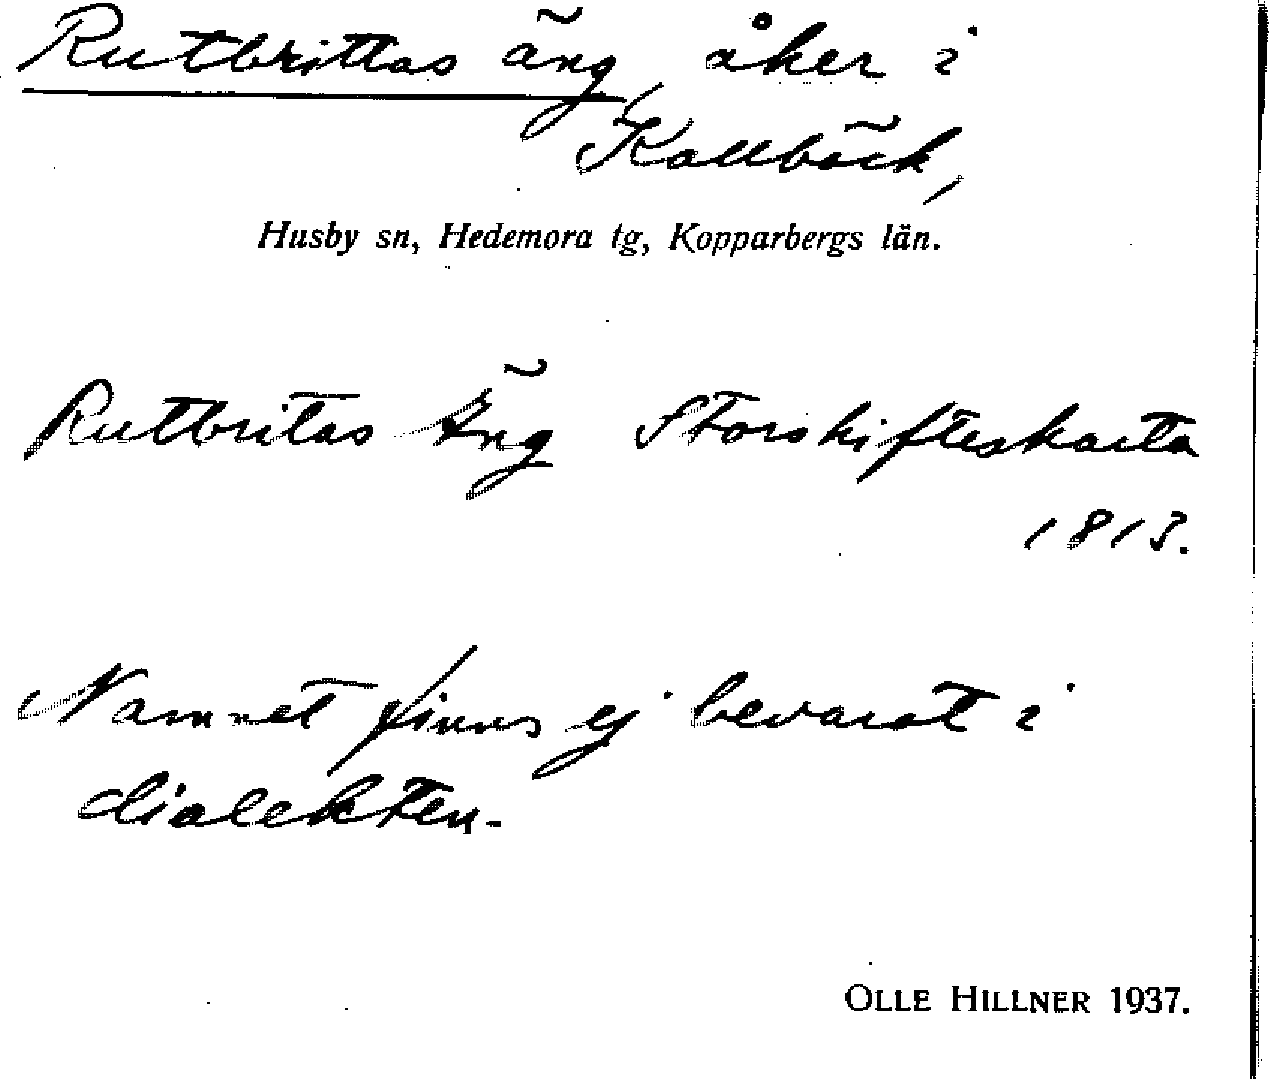 Rutbrittas äng, åker i
Kallbäck,
Husby sn, Hedemora tg, Kopparbergs län.
Rutbritas Äng Storskifteskarta
1813.
Namnet finns ej bevarat i
dialekten.
OLLE HILLNER 1937.